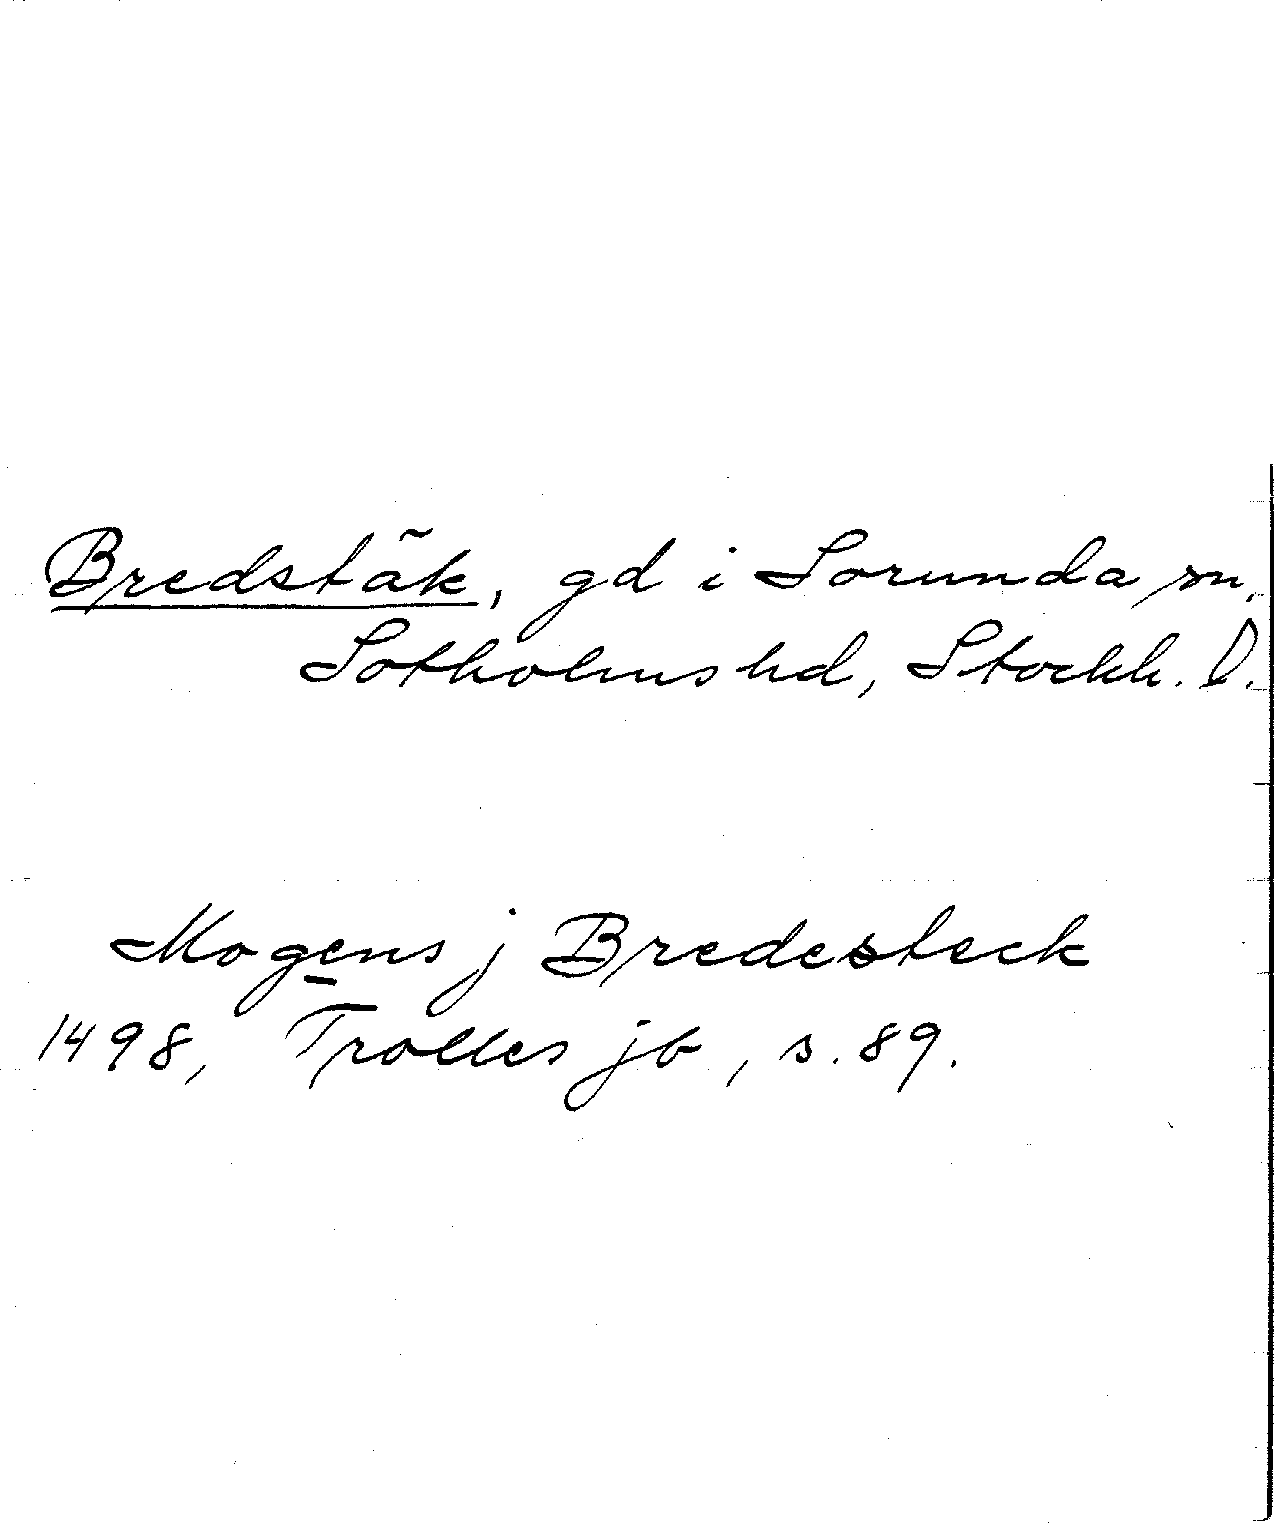 Bredstäk, gd i Sorunda sn,
Sotholms hd, Stockh. l.
Mogens j Bredesteck
1498, Trolles jb, s. 89.